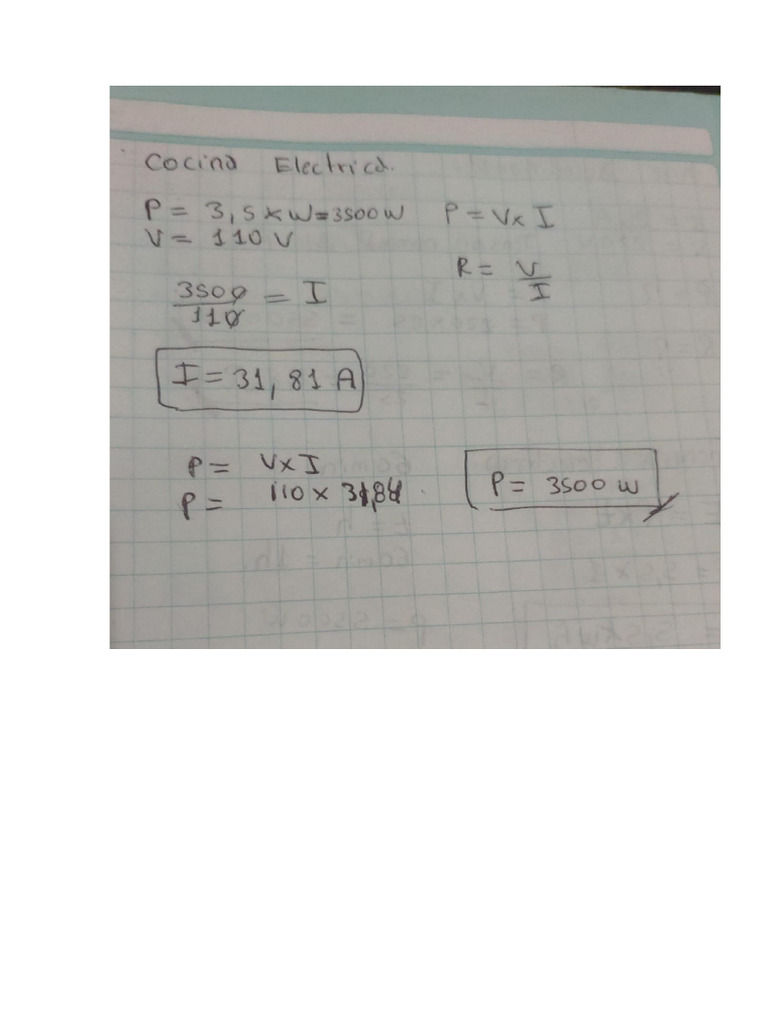 Cocina Electrica.
P = 3,5 KW = 3500 W P = V x I
V = 110 V
R = V/I
3500/110 = I
I = 31,81 A
P = V x I
P = 110 x 31,81.
P = 3500 W